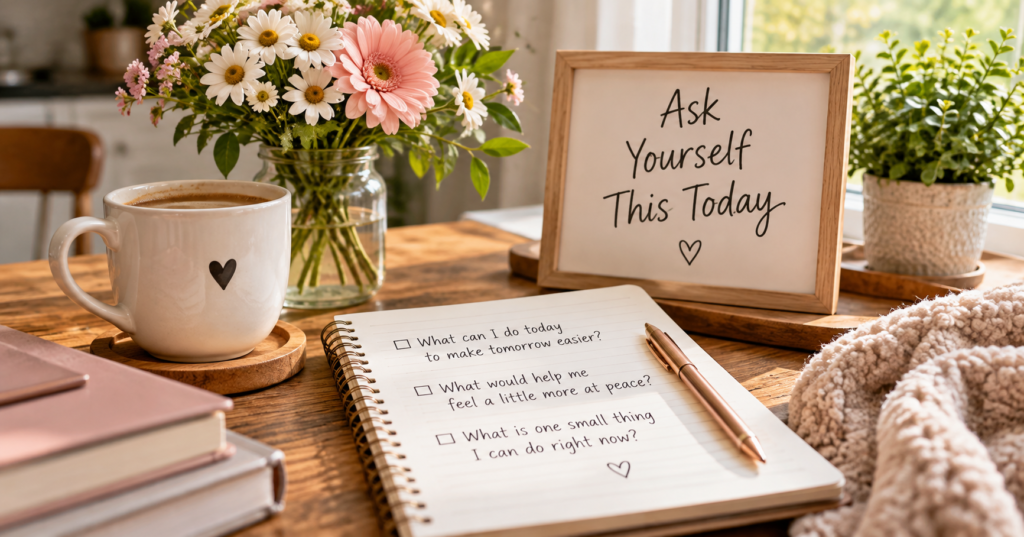 Ask
Yourself
This Today
What can I do today
to make tomorrow easier?
What would help me
feel a little more at peace?
What is one small thing
I can do right now?